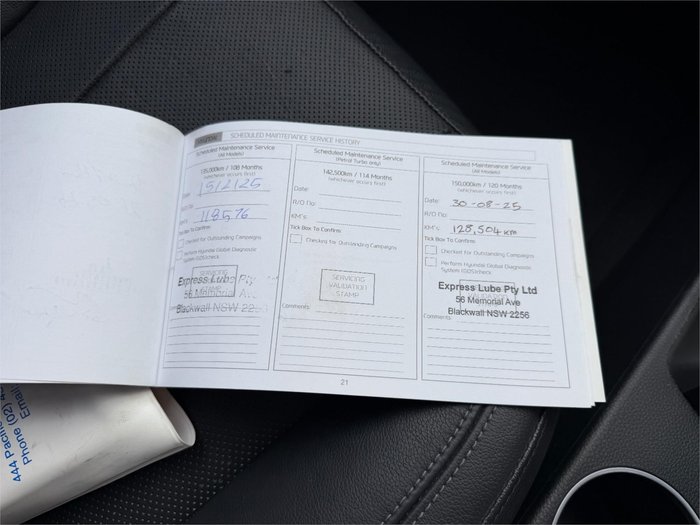 HYUNDAI
SCHEDULED MAINTENANCE SERVICE HISTORY
Scheduled Maintenance Service
(All Models)
135,000km / 108 Months
(whichever occurs first)
Date
R/O No
118576
Tick Box To Confirm:
Checked for Outstanding Campaigns
Perform Hyundai Global Diagnostic
System (GDS) check
SERVICING
Express Lube Pty
STAMP
56 Memorial Ave
Blackwall NSW
Comments
Scheduled Maintenance Service
(Petrol Turbo only)
142,500km / 114 Months
(whichever occurs first)
Date:
R/O No:
KM's:
Tick Box To Confirm:
Checked for Outstanding Campaigns
SERVICING
VALIDATION
STAMP
Comments:
Scheduled Maintenance Service
(All Models)
150,000km / 120 Months
(whichever occurs first)
Date: 30-08-25
R/O No:
KM's: 128,504 km
Tick Box To Confirm:
Checked for Outstanding Campaigns
Perform Hyundai Global Diagnostic
System (GDS) check
Express Lube Pty Ltd
56 Memorial Ave
Blackwall NSW 2256
Comments
21
444 Pacific
Phone (02)
Email